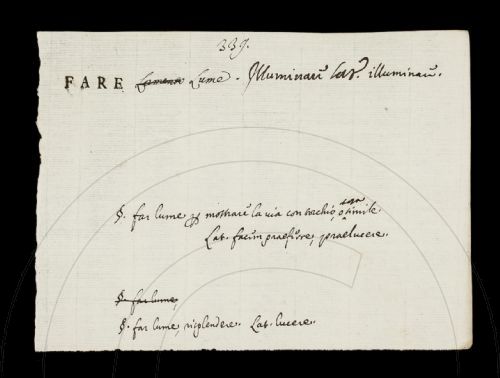 339.
FARE Lume. Illuminare Lat. illuminare.
§. far lume p mostrare la via con torchio, o cosa simile
Lat. facem praeferre, praelucere.
§. far lume,
§. far lume, risplendere. Lat. lucere.